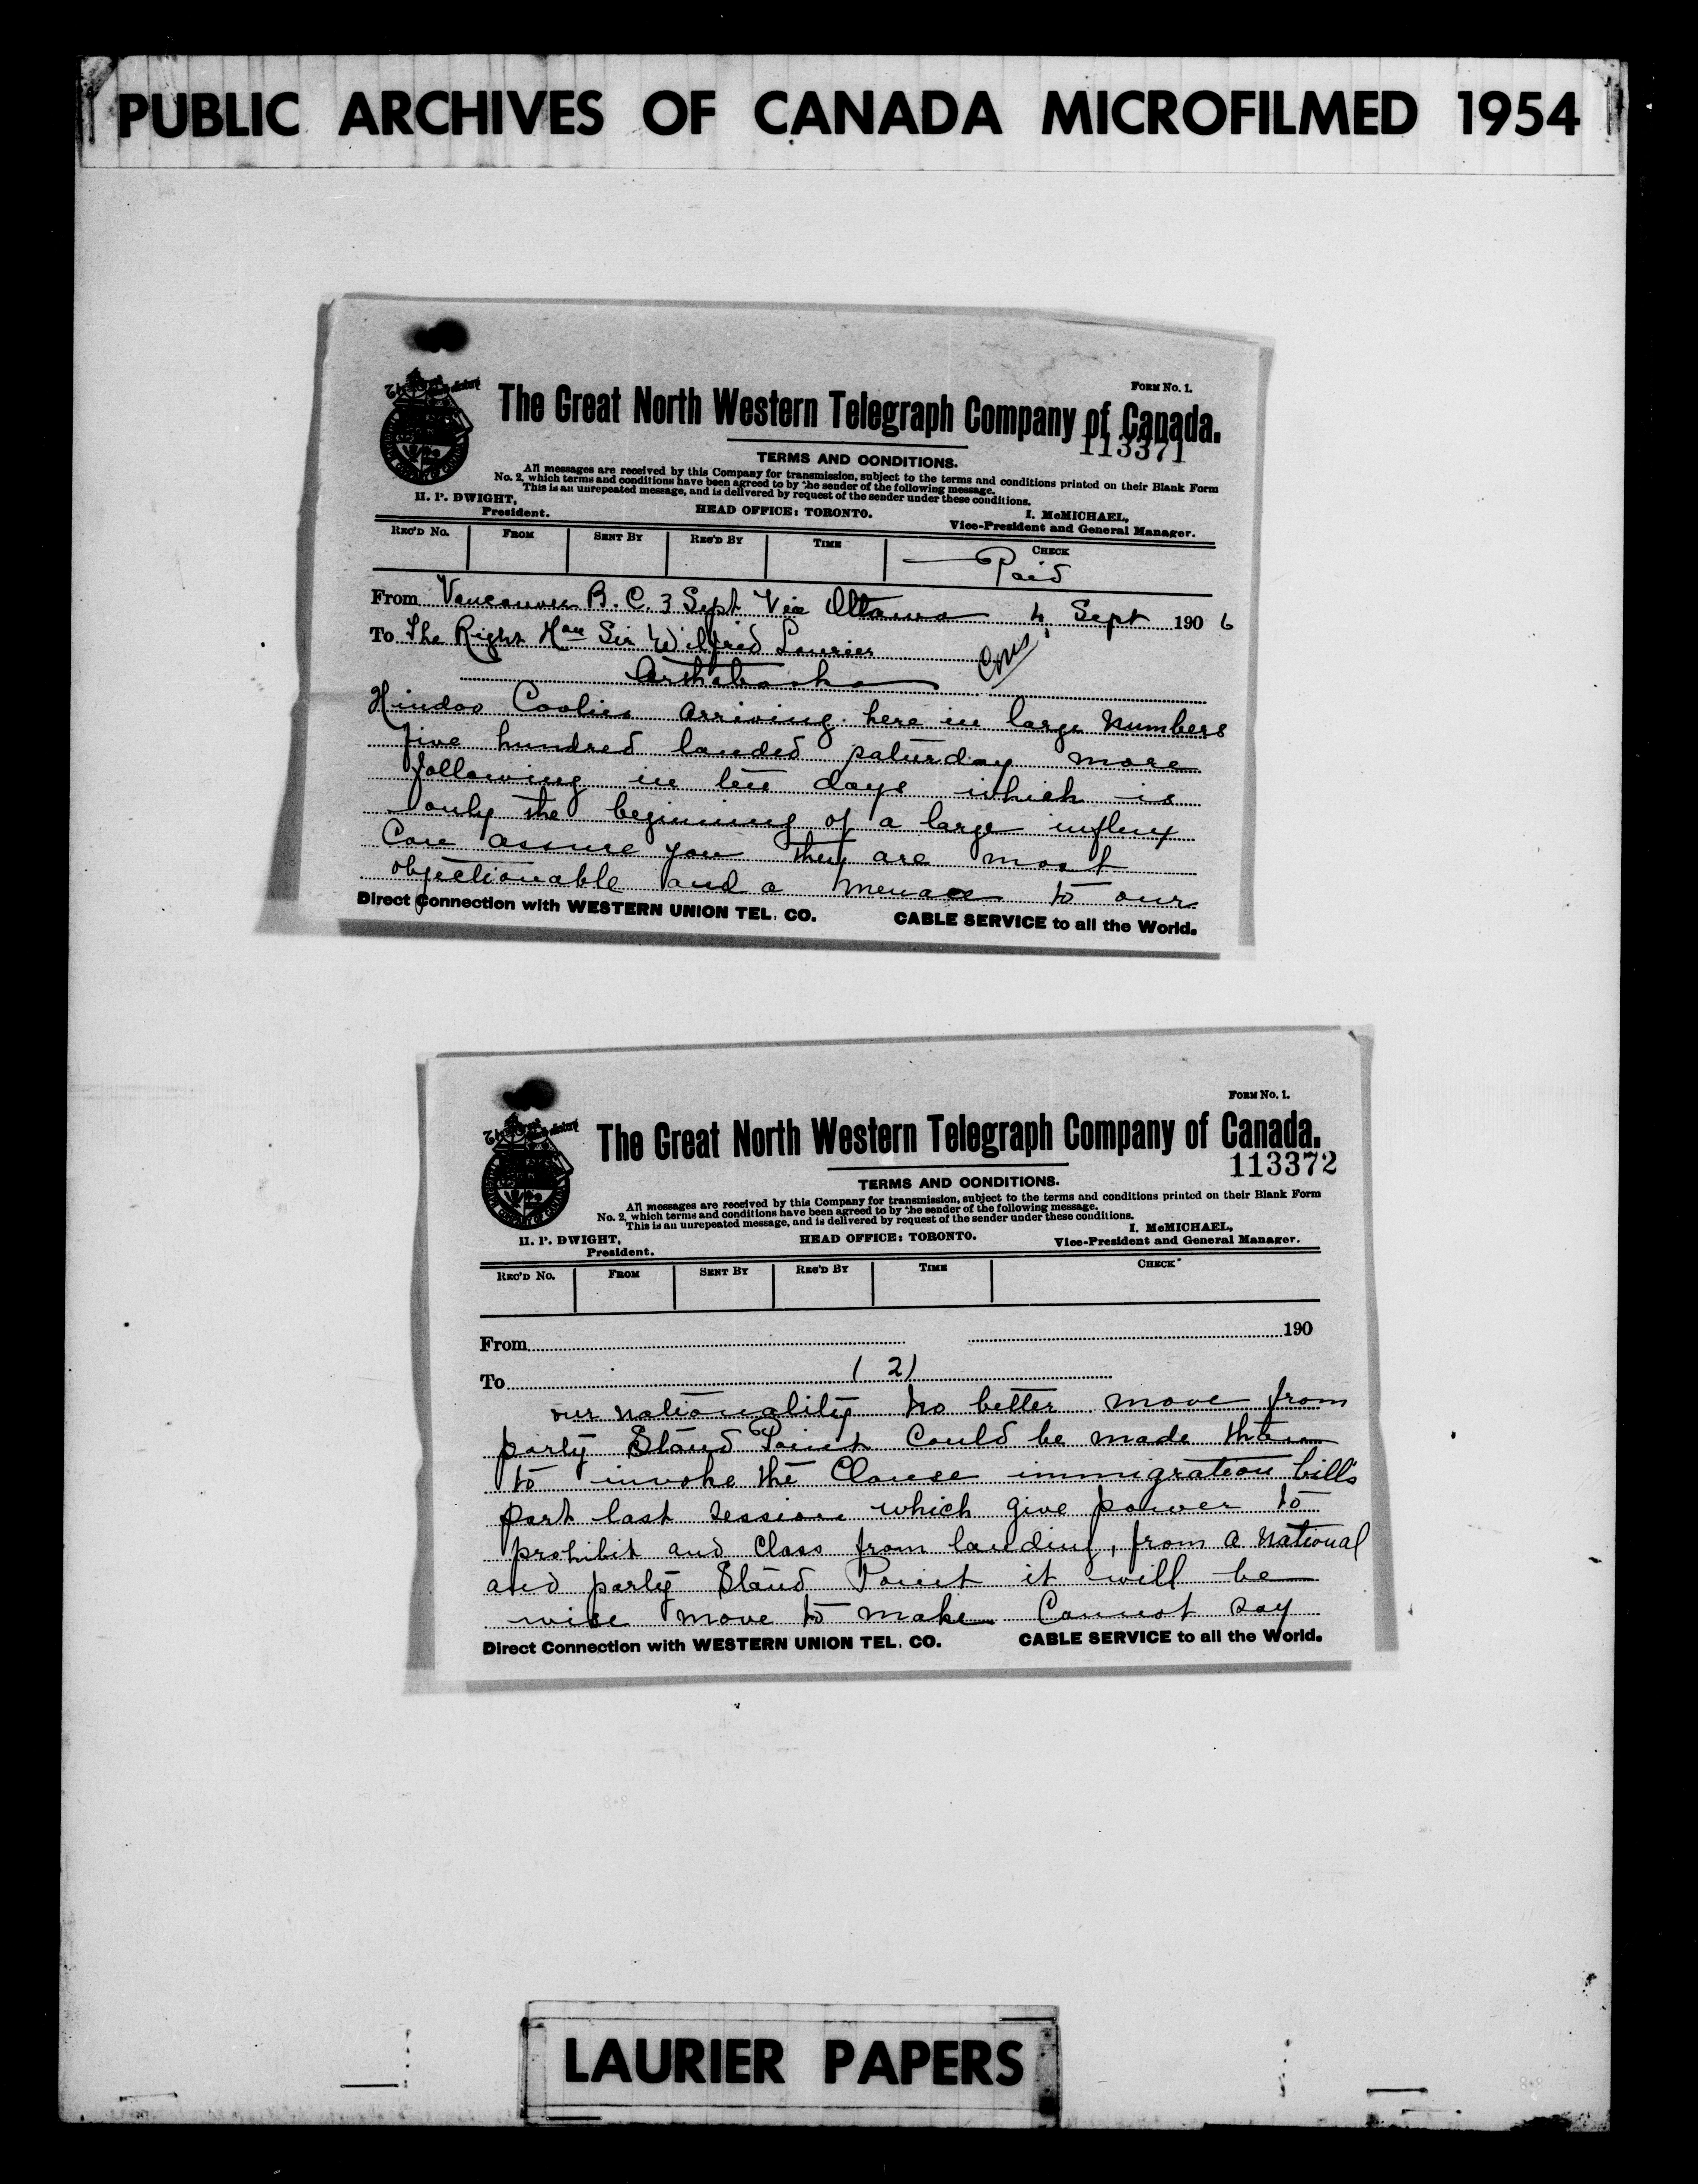 PUBLIC ARCHIVES OF CANADA MICROFILMED 1954
FORM No. 1.
The Great North Western Telegraph Company of Canada.
113371
TERMS AND CONDITIONS.
All messages are received by this Company for transmission, subject to the terms and conditions printed on their Blank Form
No. 2, which terms and conditions have been agreed to by the sender of the following message.
This is an unrepeated message, and is delivered by request of the sender under these conditions.
H. P. DWIGHT,
President.
HEAD OFFICE: TORONTO.
I. McMICHAEL,
Vice-President and General Manager.
REC'D No. FROM SENT BY REC'D BY TIME CHECK
Paid
From Vancouver B.C. 3 Sept Via Ottawa 4 Sept 1906
To The Right Hon Sir Wilfred Laurier
Arthabaska
Hindoo Coolies arriving here in large numbers
five hundred landed saturday more
following in ten days which is
only the beginning of a large influx
Can assure you they are most
objectionable and a menace to our
Direct Connection with WESTERN UNION TEL. CO. CABLE SERVICE to all the World.
FORM No. 1.
The Great North Western Telegraph Company of Canada.
113372
TERMS AND CONDITIONS.
All messages are received by this Company for transmission, subject to the terms and conditions printed on their Blank Form
No. 2, which terms and conditions have been agreed to by the sender of the following message.
This is an unrepeated message, and is delivered by request of the sender under these conditions.
H. P. DWIGHT,
President.
HEAD OFFICE: TORONTO.
I. McMICHAEL,
Vice-President and General Manager.
REC'D No. FROM SENT BY REC'D BY TIME CHECK
From 190
To (2)
our nationality no better move from
party Stand Point Could be made than
to invoke the Clause immigration bills
part last session which give power to
prohibit and Class from landing, from a National
and party Stand Point it will be
wise move to make Cannot say
Direct Connection with WESTERN UNION TEL. CO. CABLE SERVICE to all the World.
LAURIER PAPERS